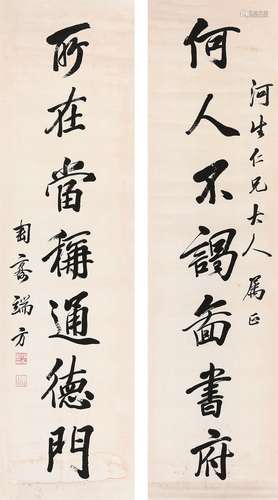 河生仁兄大人属正
何人不谒啬書府
所在當稱通德門
匋齋端方